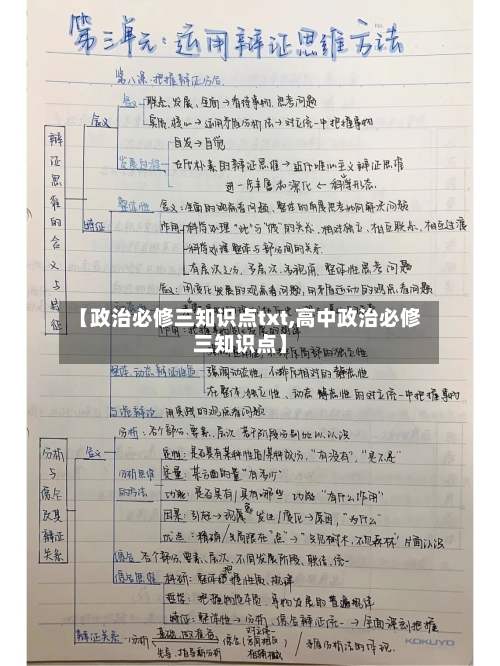 第三单元:运用辩证思维方法
第八课.把握辩证分合
含义 联系、发展、全面→看待事物、思考问题
含义 实质、核心→运用矛盾分析法→对立统一中把握事物
自发→自觉
发展自旅 古代朴素的辩证思维→近代唯心主义辩证思维
进一步丰富和深化←科学形态.
辩证思维的含义与特征
整体性 含义:全面的观点看问题、整体的角度思考如何解决问题
特征 作用 科学处理"此"与"彼"的关系,相对独立、相互联系、相互过渡
科学处理整体与部分间的关系
有层次之分,多层次、多视角、整体性思考问题
含义:用变化发展的观点看问题,用矛盾运动的观点看问题
【政治必修三知识点txt,高中政治必修
三知识点】
整体、动态、辩证性质 强调动态性,不排斥相对的静态性
在整体、独立性、动态、静态性的对立统一中把握事物
与唯辩证 用实践的观点看问题
分析:各个部分、要素、层次、若干阶段分别加以认识
分析与综合及其辩证关系
含义 定性:是否具有某种性质/某种成分,"有没有","是不是"
分析思维的方法 定量:某方面的量"有多少"
功能:是否具有/具有哪些功能"有什么作用"
因果:引起→现象 发生/变化→原因,"为什么"
优点:精确/局限在"点"→"只见树木,不见森林"片面认识
综合 各个部分、要素、层次、不同发展阶段,联结、统一
综合思维 科研:整体把握性质、规律
哲学:把握物质本质、事物发展的普遍规律
特征:整体性→分析、综合辩证统一→全面深刻把握
辩证关系 分析 基础、改革 综合 矛盾分析法的体现.
先导、指导新分析
KOKUYO